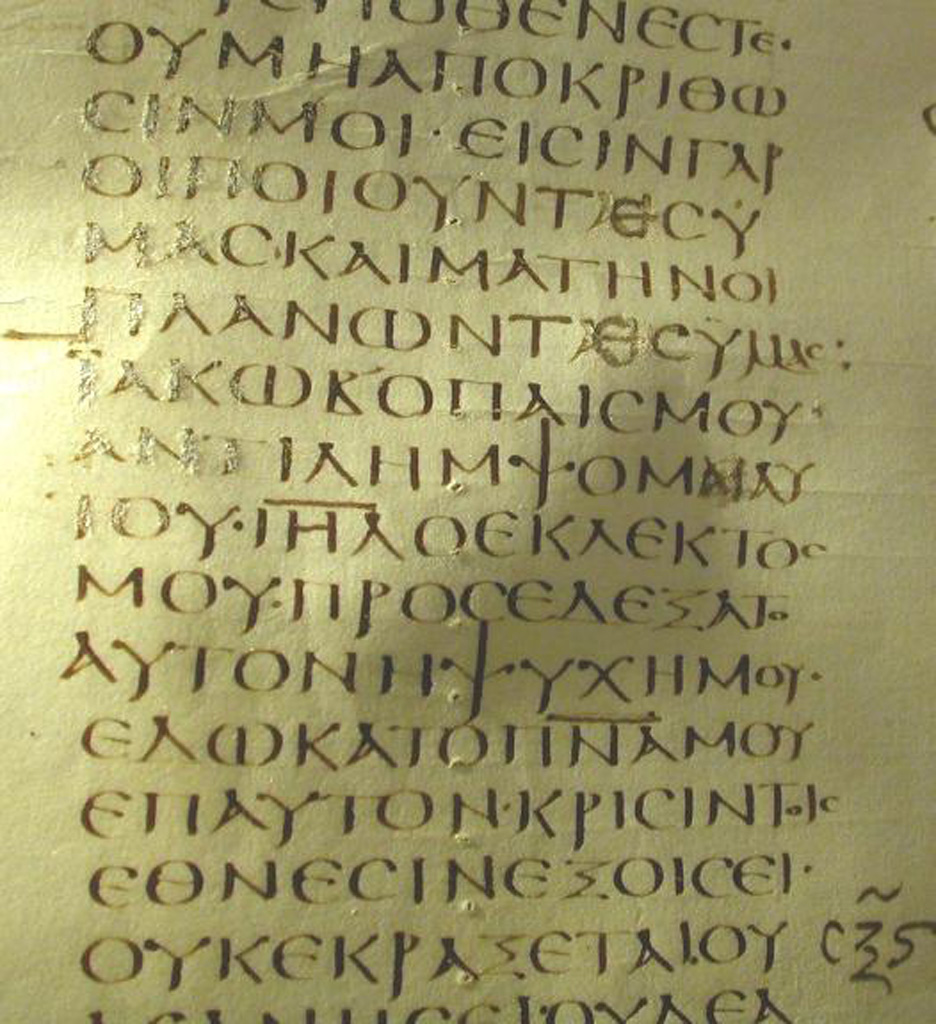 ΠΟΘΕΝΕϹΤΕ·
ΟΥΜΗΑΠΟΚΡΙΘΩ
ϹΙΝΜΟΙ·ΕΙϹΙΝΓΑΡ
ΟΙΠΟΙΟΥΝΤΕϹΥ
ΜΑϹ·ΚΑΙΜΑΤΗΝΟΙ
ΠΛΑΝΩΝΤΕϹΥΜΑϲ:
ΪΑΚΩΚΟΠΑΙϹΜΟΥ·
ΑΝΤΙΛΗΜΨΟΜΑΙΑΥ
ΤΟΥ·Ι̅Η̅Λ̅ΟΕΚΛΕΚΤΟϹ
ΜΟΥ·ΠΡΟϹΕΔΕΞΑΤΟ
ΑΥΤΟΝΗΨΥΧΗΜΟΥ·
ΕΔΩΚΑΤΟΠ̅Ν̅Α̅ΜΟΥ
ΕΠΑΥΤΟΝ·ΚΡΙϹΙΝΤΟΙϹ
ΕΘΝΕϹΙΝΕΞΟΙϹΕΙ·
ΟΥΚΕΚΡΑΞΕΤΑΙ·ΟΥ